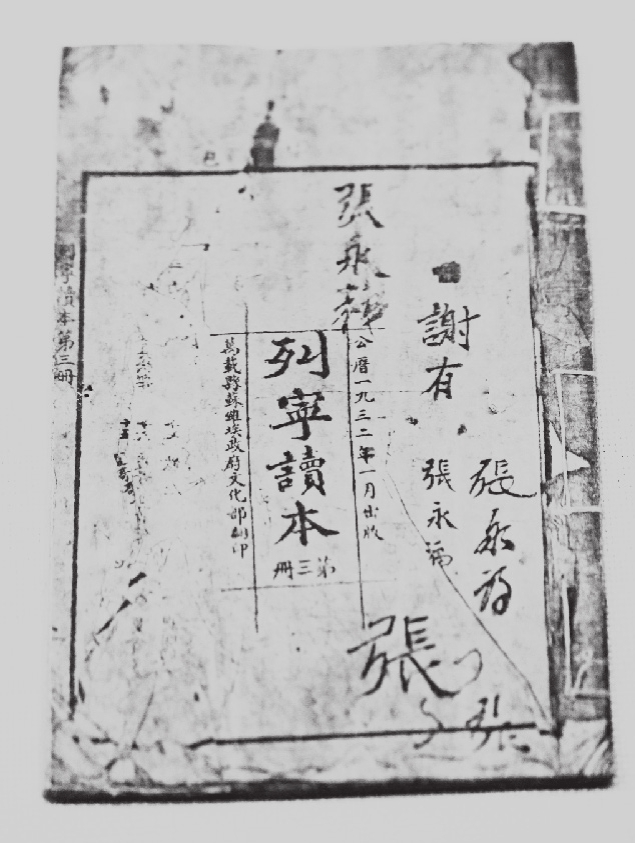 謝有
張永
張永
張
張
公曆一九三二年一月出版
列寧讀本
第三冊
萬載縣蘇維埃政府文化部翻印
列寧讀本第三冊